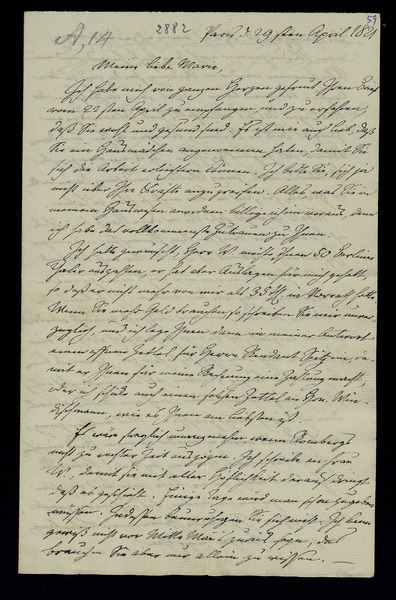 A, 14
2882
59
Paris d. 29sten April 1821
Meine liebe Marie,
Ich habe mich von ganzem Herzen gefreut Ihren Brief
vom 22sten April zu empfangen und zu erfahren,
daß Sie wohl und gesund sind. Es ist mir auch lieb, daß
Sie ein Hausmädchen angenommen haben, damit Sie
sich die Arbeit erleichtern können. Ich bitte Sie, sich ja
nicht über Ihre Kräfte anzugreifen. Alles was Sie in
meinem Hauswesen anordnen billige ich im voraus, denn
ich habe das vollkommenste Zutrauen zu Ihnen.
Ich hatte gewünscht, Herr W. möchte Ihnen 50 Berliner
Thaler auszahlen, er hat aber Auslagen für mich gehabt,
so daß er nicht mehr von mir als 35 in Vorrath hatte.
Wenn Sie mehr Geld brauchen, so schreiben Sie mir unver-
züglich, und ich lege Ihnen dann in meiner Antwort
einen offenen Zettel für Herrn Rendant Spitz ein, da-
mit er Ihnen für meine Rechnung eine Zahlung macht,
oder ich schicke auch einen solchen Zettel an Hrn. Win-
dischmann, wie es Ihnen am liebsten ist.
Es wäre freylich unangenehm wenn Rombergs
nicht zu rechter Zeit auszögen. Ich schreibe an Frau
W. damit sie mit aller Höflichkeit darauf dringt
daß es geschieht. Einige Tage wird man schon zugeben
müssen. Indessen beunruhigen Sie sich nicht. Ich kann
gewiß nicht vor Mitte Mai zurück seyn, das
brauchen Sie aber nur allein zu wissen. —